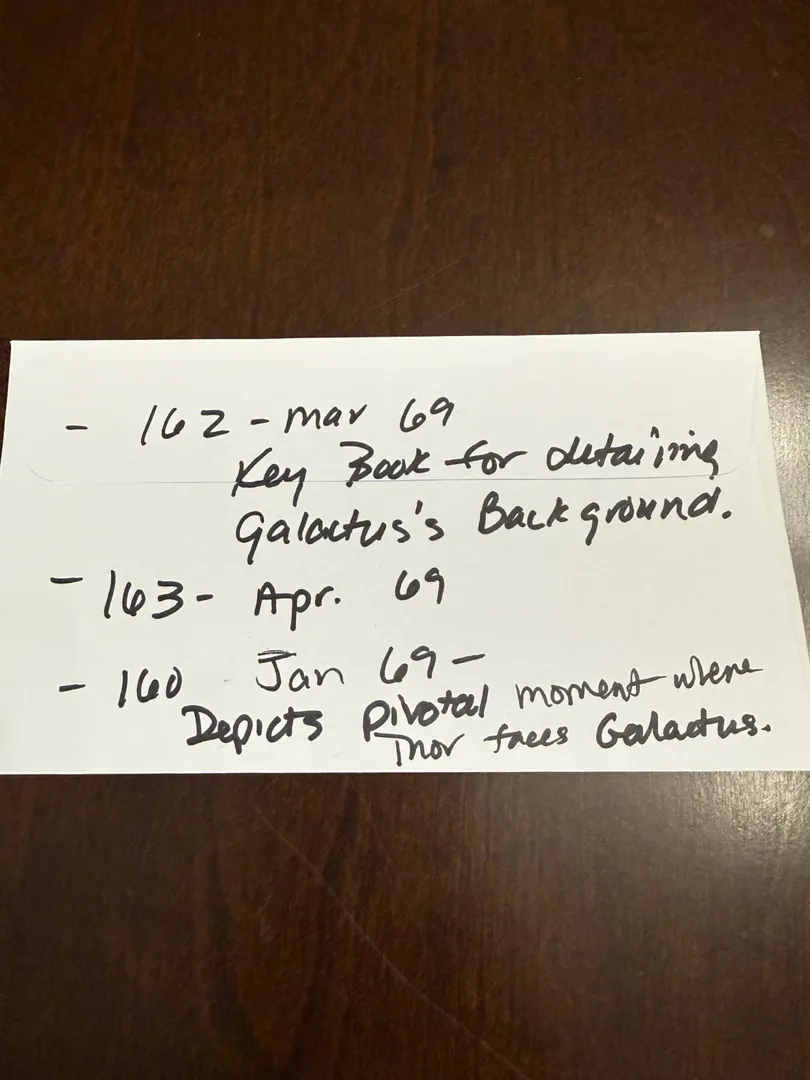 - 162 - Mar 69
Key Book for detailing
Galactus's Background.
- 163 - Apr. 69
- 160 Jan 69 -
Depicts Pivotal moment where
Thor faces Galactus.